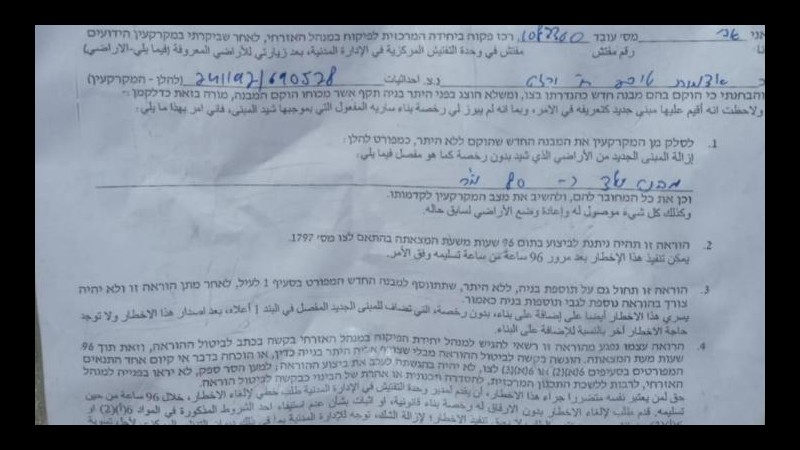 אני מס' עובד רכז פקוח ביחידה המרכזית לפיקוח במנהל האזרחי, לאחר שביקרתי במקרקעין הידועים
رقم مفتش مفتش في وحدة التفتيش المركزية في الإدارة المدنية، بعد زيارتي للأراضي المعروفة (فيما يلي-الأراضي)
נ.צ. احداثيات 241192/690528 (להלן - המקרקעין)
והבחנתי כי הוקם בהם מבנה חדש כהגדרתו בצו, ומשלא הוצג בפני היתר בניה תקף אשר מכוחו הוקם המבנה, מורה בזאת כדלקמן:
ولاحظت انه أقيم عليها مبنى جديد كتعريفه في الامر، وبما انه لم يبرز لي رخصة بناء سارية المفعول التي بموجبها شيد المبنى، فاني امر بهذا ما يلي:
1. לסלק מן המקרקעין את המבנה החדש שהוקם ללא היתר, כמפורט להלן:
إزالة المبنى الجديد من الأراضي الذي شيد بدون رخصة كما هو مفصل فيما يلي:
80
וכן את כל המחובר להם, ולהשיב את מצב המקרקעין לקדמותו.
وكذلك كل شيء موصول له وإعادة وضع الأراضي لسابق حاله.
2. הוראה זו תהיה ניתנת לביצוע בתום 96 שעות משעת המצאתה בהתאם לצו מס' 1797.
يمكن تنفيذ هذا الإخطار بعد مرور 96 ساعة من ساعة تسليمه وفق الأمر.
3. הוראה זו תחול גם על תוספת בניה, ללא היתר, שתתווסף למבנה החדש המפורט בסעיף 1 לעיל, לאחר מתן הוראה זו ולא יהיה
צורך בהוראה נוספת לגבי תוספות בניה כאמור.
يسري هذا الإخطار أيضا على إضافة على بناء، بدون رخصة، التي تضاف للمبنى الجديد المفصل في البند 1 أعلاه، بعد اصدار هذا الاخطار ولا توجد
حاجة الاخطار آخر بالنسبة للإضافة على البناء.
4. הרואה עצמו נפגע מהוראה זו רשאי להגיש למנהל יחידת הפיקוח במנהל האזרחי בקשה בכתב לביטול ההוראה, וזאת תוך 96
שעות מעת המצאתה. הוגשה בקשה לביטול ההוראה מבלי היתר בנייה כדין, או הוכחה בדבר אי קיום אחד התנאים
המפורטים בסעיפים לצו, לא יהיה בהגשתה לעכב את ביצוע ההוראה; למען הסר ספק, לא יראו בפנייה למנהל
האזרחי, לרבות ללשכת התכנון המרכזית, להסדרה תכנונית או אחרת של הבינוי כבקשה לביטול הוראה.
حق لمن يعتبر نفسه متضررا جراء هذا الاخطار، أن يقدم لمدير وحدة التفتيش في الإدارة المدنية طلب خطي لإلغاء الاخطار، خلال 96 ساعة من حين
تسليمه. قدم طلب لإلغاء الاخطار بدون الارفاق له رخصة بناء قانونية، او اثبات بشأن عدم استيفاء احد الشروط المذكورة في المواد